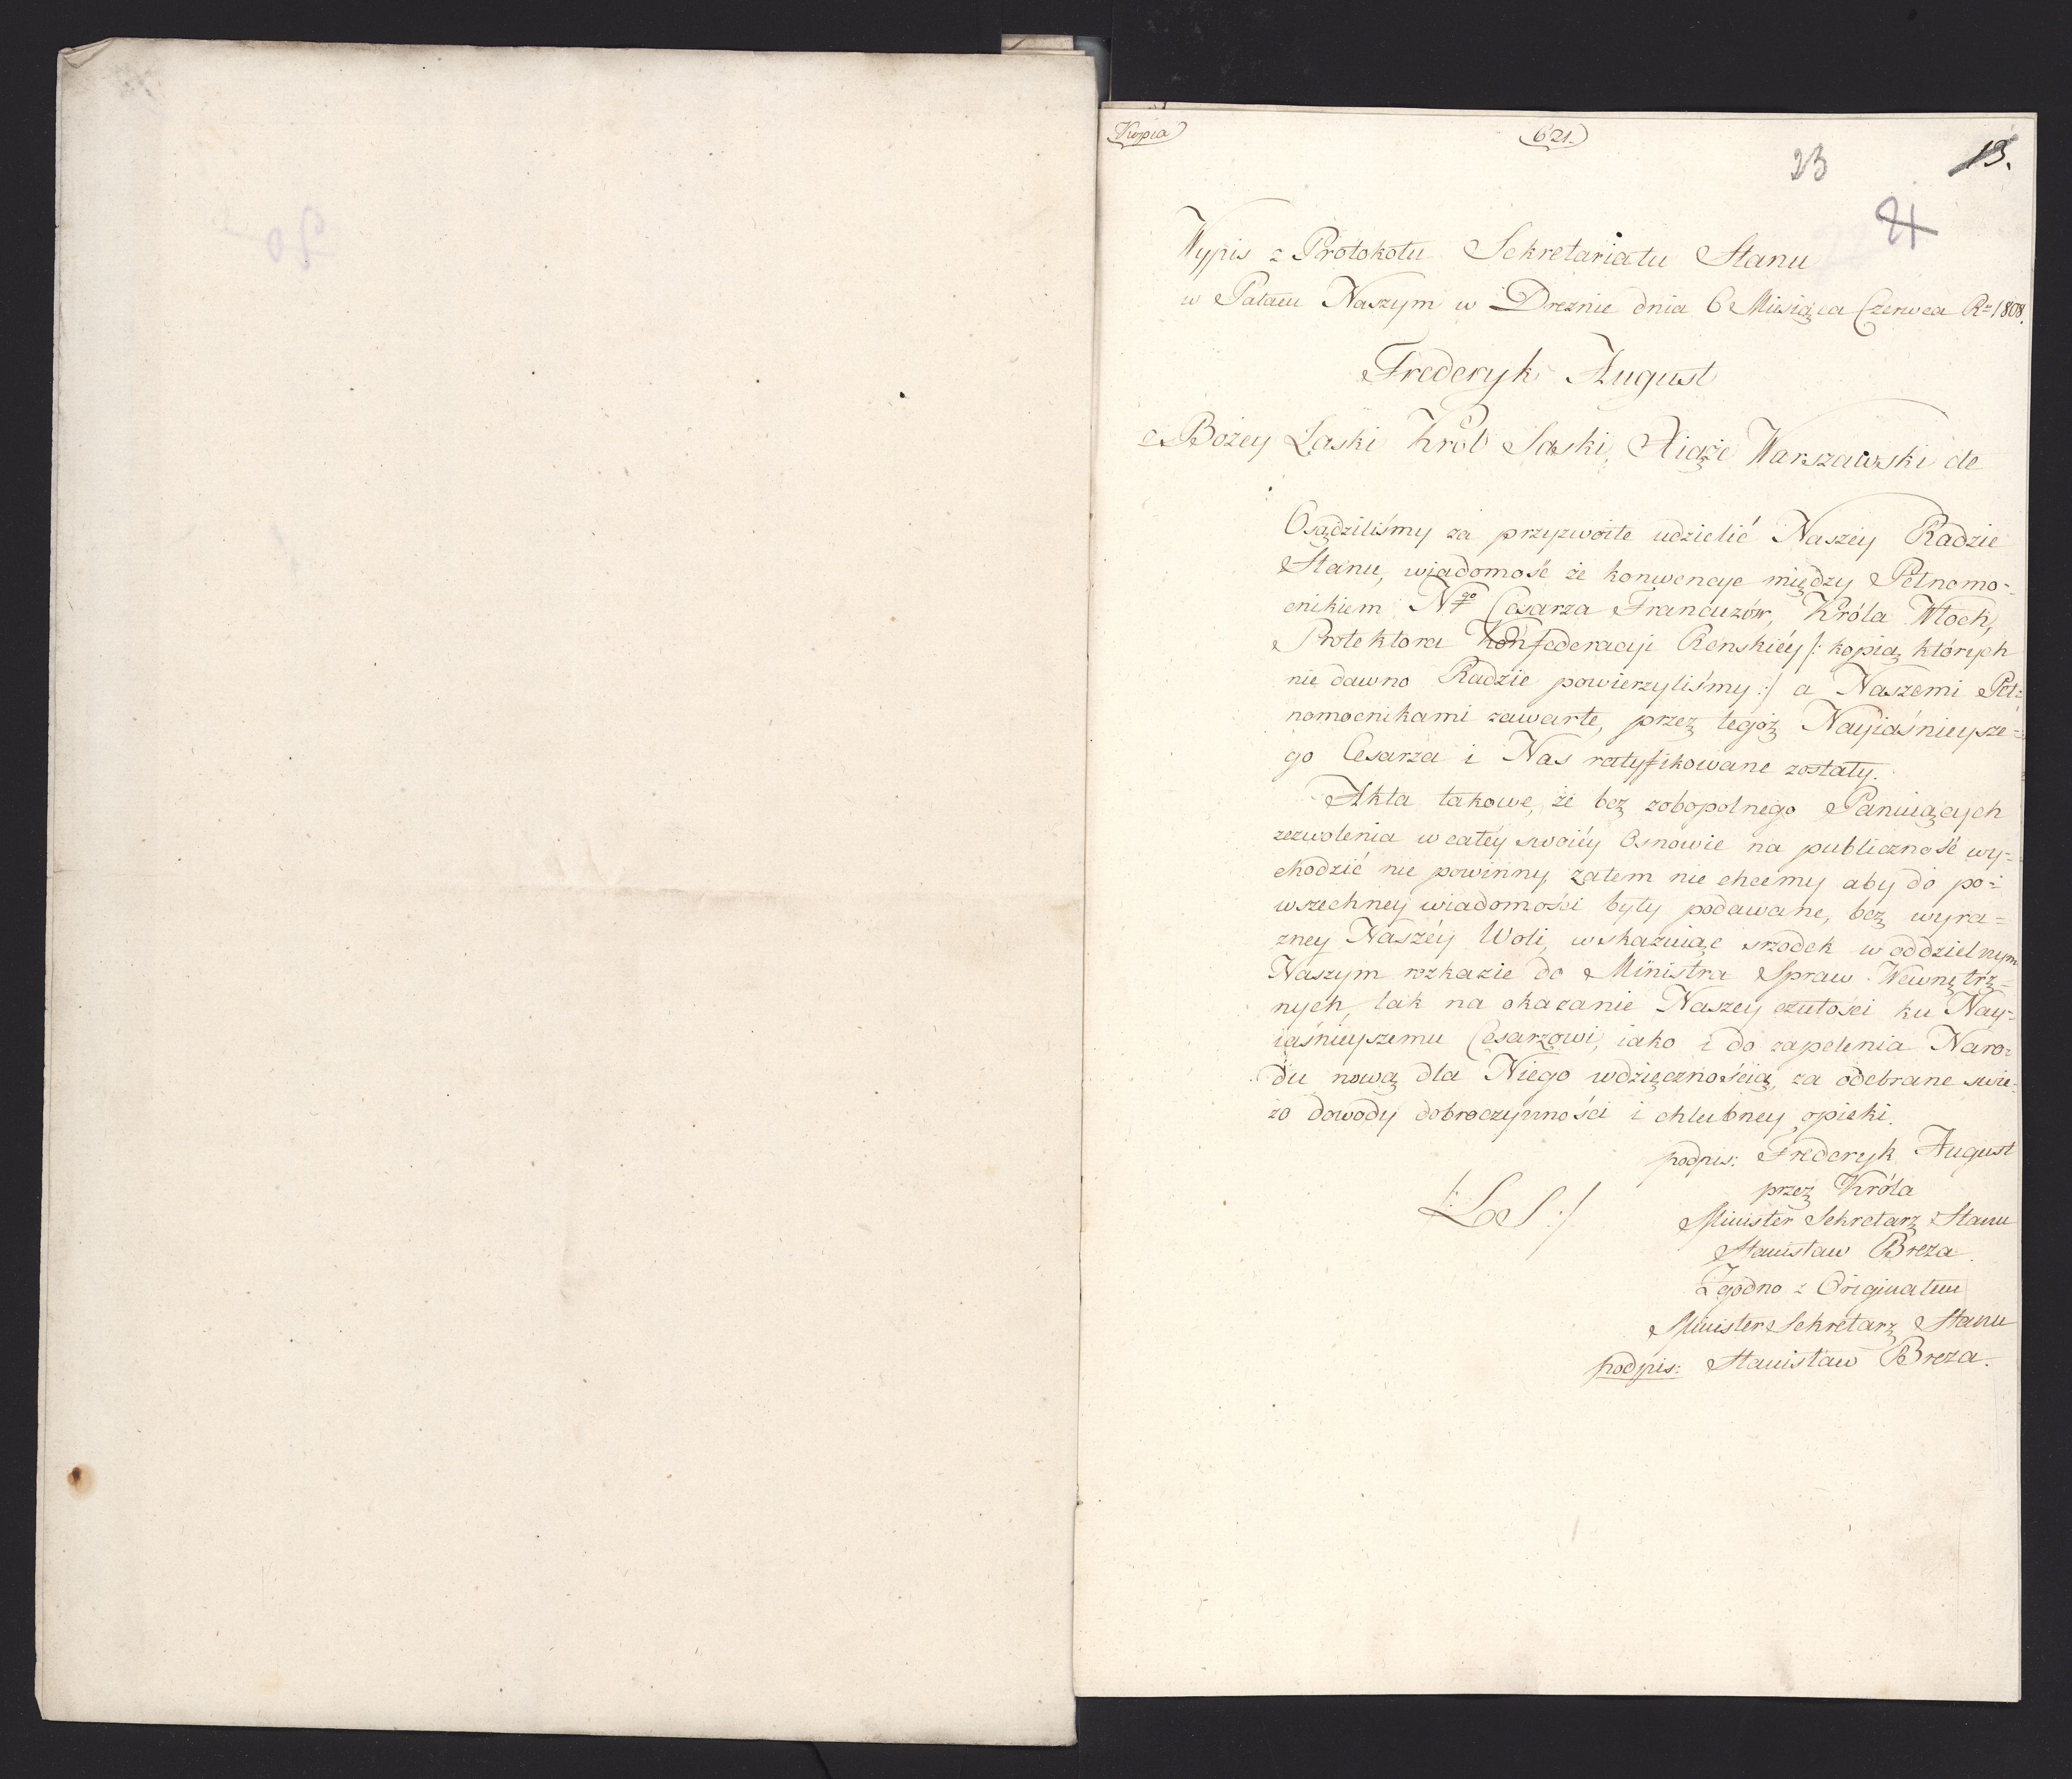 Kopia
621.
23
13.
21
Wypis z Protokołu Sekretariatu Stanu
w Pałacu Naszym w Dreznie dnia 6 Miesiąca Czerwca Ru 1808.
Frederyk August
z Bożey Łaski Król Saski, Xiąże Warszawski etc
Osądziliśmy za przyzwoite udzielić Naszey Radzie
Stanu, wiadomość że konwencye między Pełnomo-
cnikiem N.go Cesarza Francuzów, Króla Włoch,
Protektora Konfederacyi Renskiéy /: kopią których
nie dawno Radzie powierzyliśmy :/ a Naszemi Peł-
nomocnikami zawarte, przez tegoż Nayiaśnieysze-
go Cesarza i Nas ratyfikowane zostały.
Akta takowe, że bez zobopolnego Panuiących
zezwolenia w całéy swoiéy Osnowie na publiczność wy-
chodzić nie powinny, zatem nie chcemy aby do po-
wszechney wiadomości były podawane, bez wyra-
zney Naszéy Woli, wskazuiąc srzodek w oddzielnym
Naszym rozkazie do Ministra Spraw Wewnętrz-
nych, tak na okazanie Naszey czułości ku Nay-
iaśnieyszemu Cesarzowi, iako i do zapełnia Naro-
du nową dla Niego wdzięcznością, za odebrane swie-
żo dowody dobroczynności i chlubney opieki.
podpis: Frederyk August
przez Króla
/: L S :/
Minister Sekretarz Stanu
Stanisław Breza.
Zgodno z Originałem
Minister Sekretarz Stanu
podpis: Stanisław Breza.